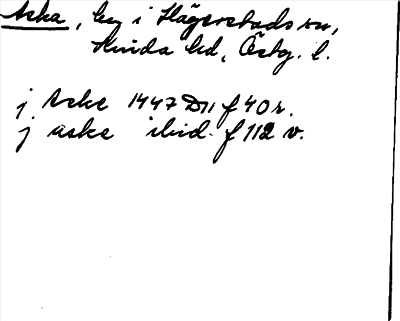 Aska, by i Hägerstads sn,
Kinda hd, Östg. l.
j Aske 1447 D11 f 40 r.
j aske ibid. f 112 v.